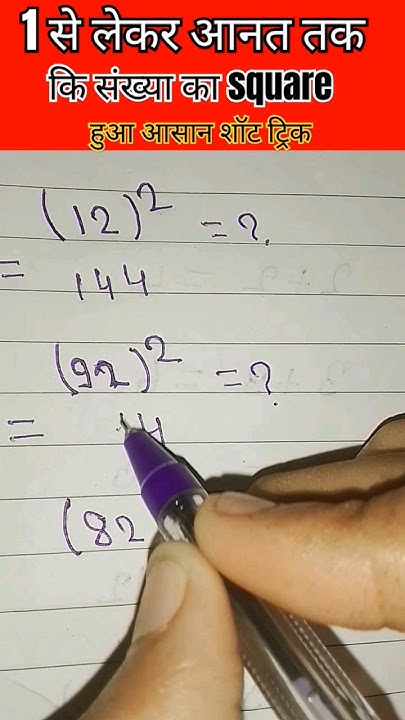 1 से लेकर आनत तक
कि संख्या का square
हुआ आसान शॉट ट्रिक
(12)² = ?
= 144
(92)² = ?
= 4
(82